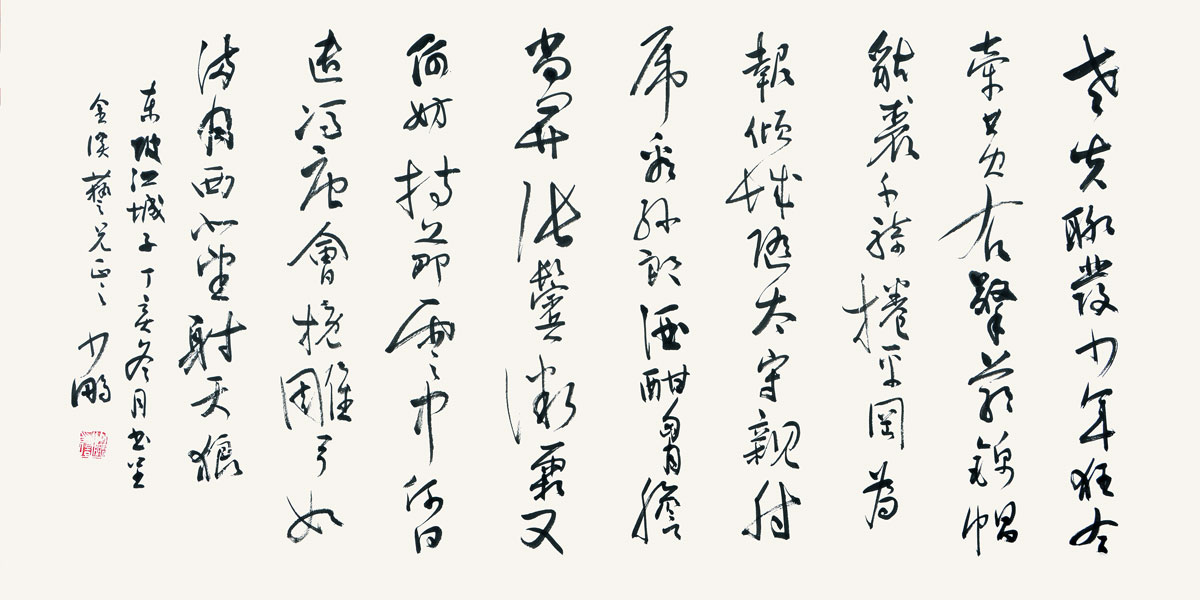 老夫聊發少年狂左
牽黃右擎蒼錦帽
貂裘千騎捲平岡為
報傾城隨太守親射
虎看孫郎酒酣胷膽
尚開張鬢微霜又
何妨持節雲中何日
遣馮唐會挽雕弓如
滿月西北望射天狼
东坡江城子丁亥冬月书呈
金溪藝兄正之 少鵬